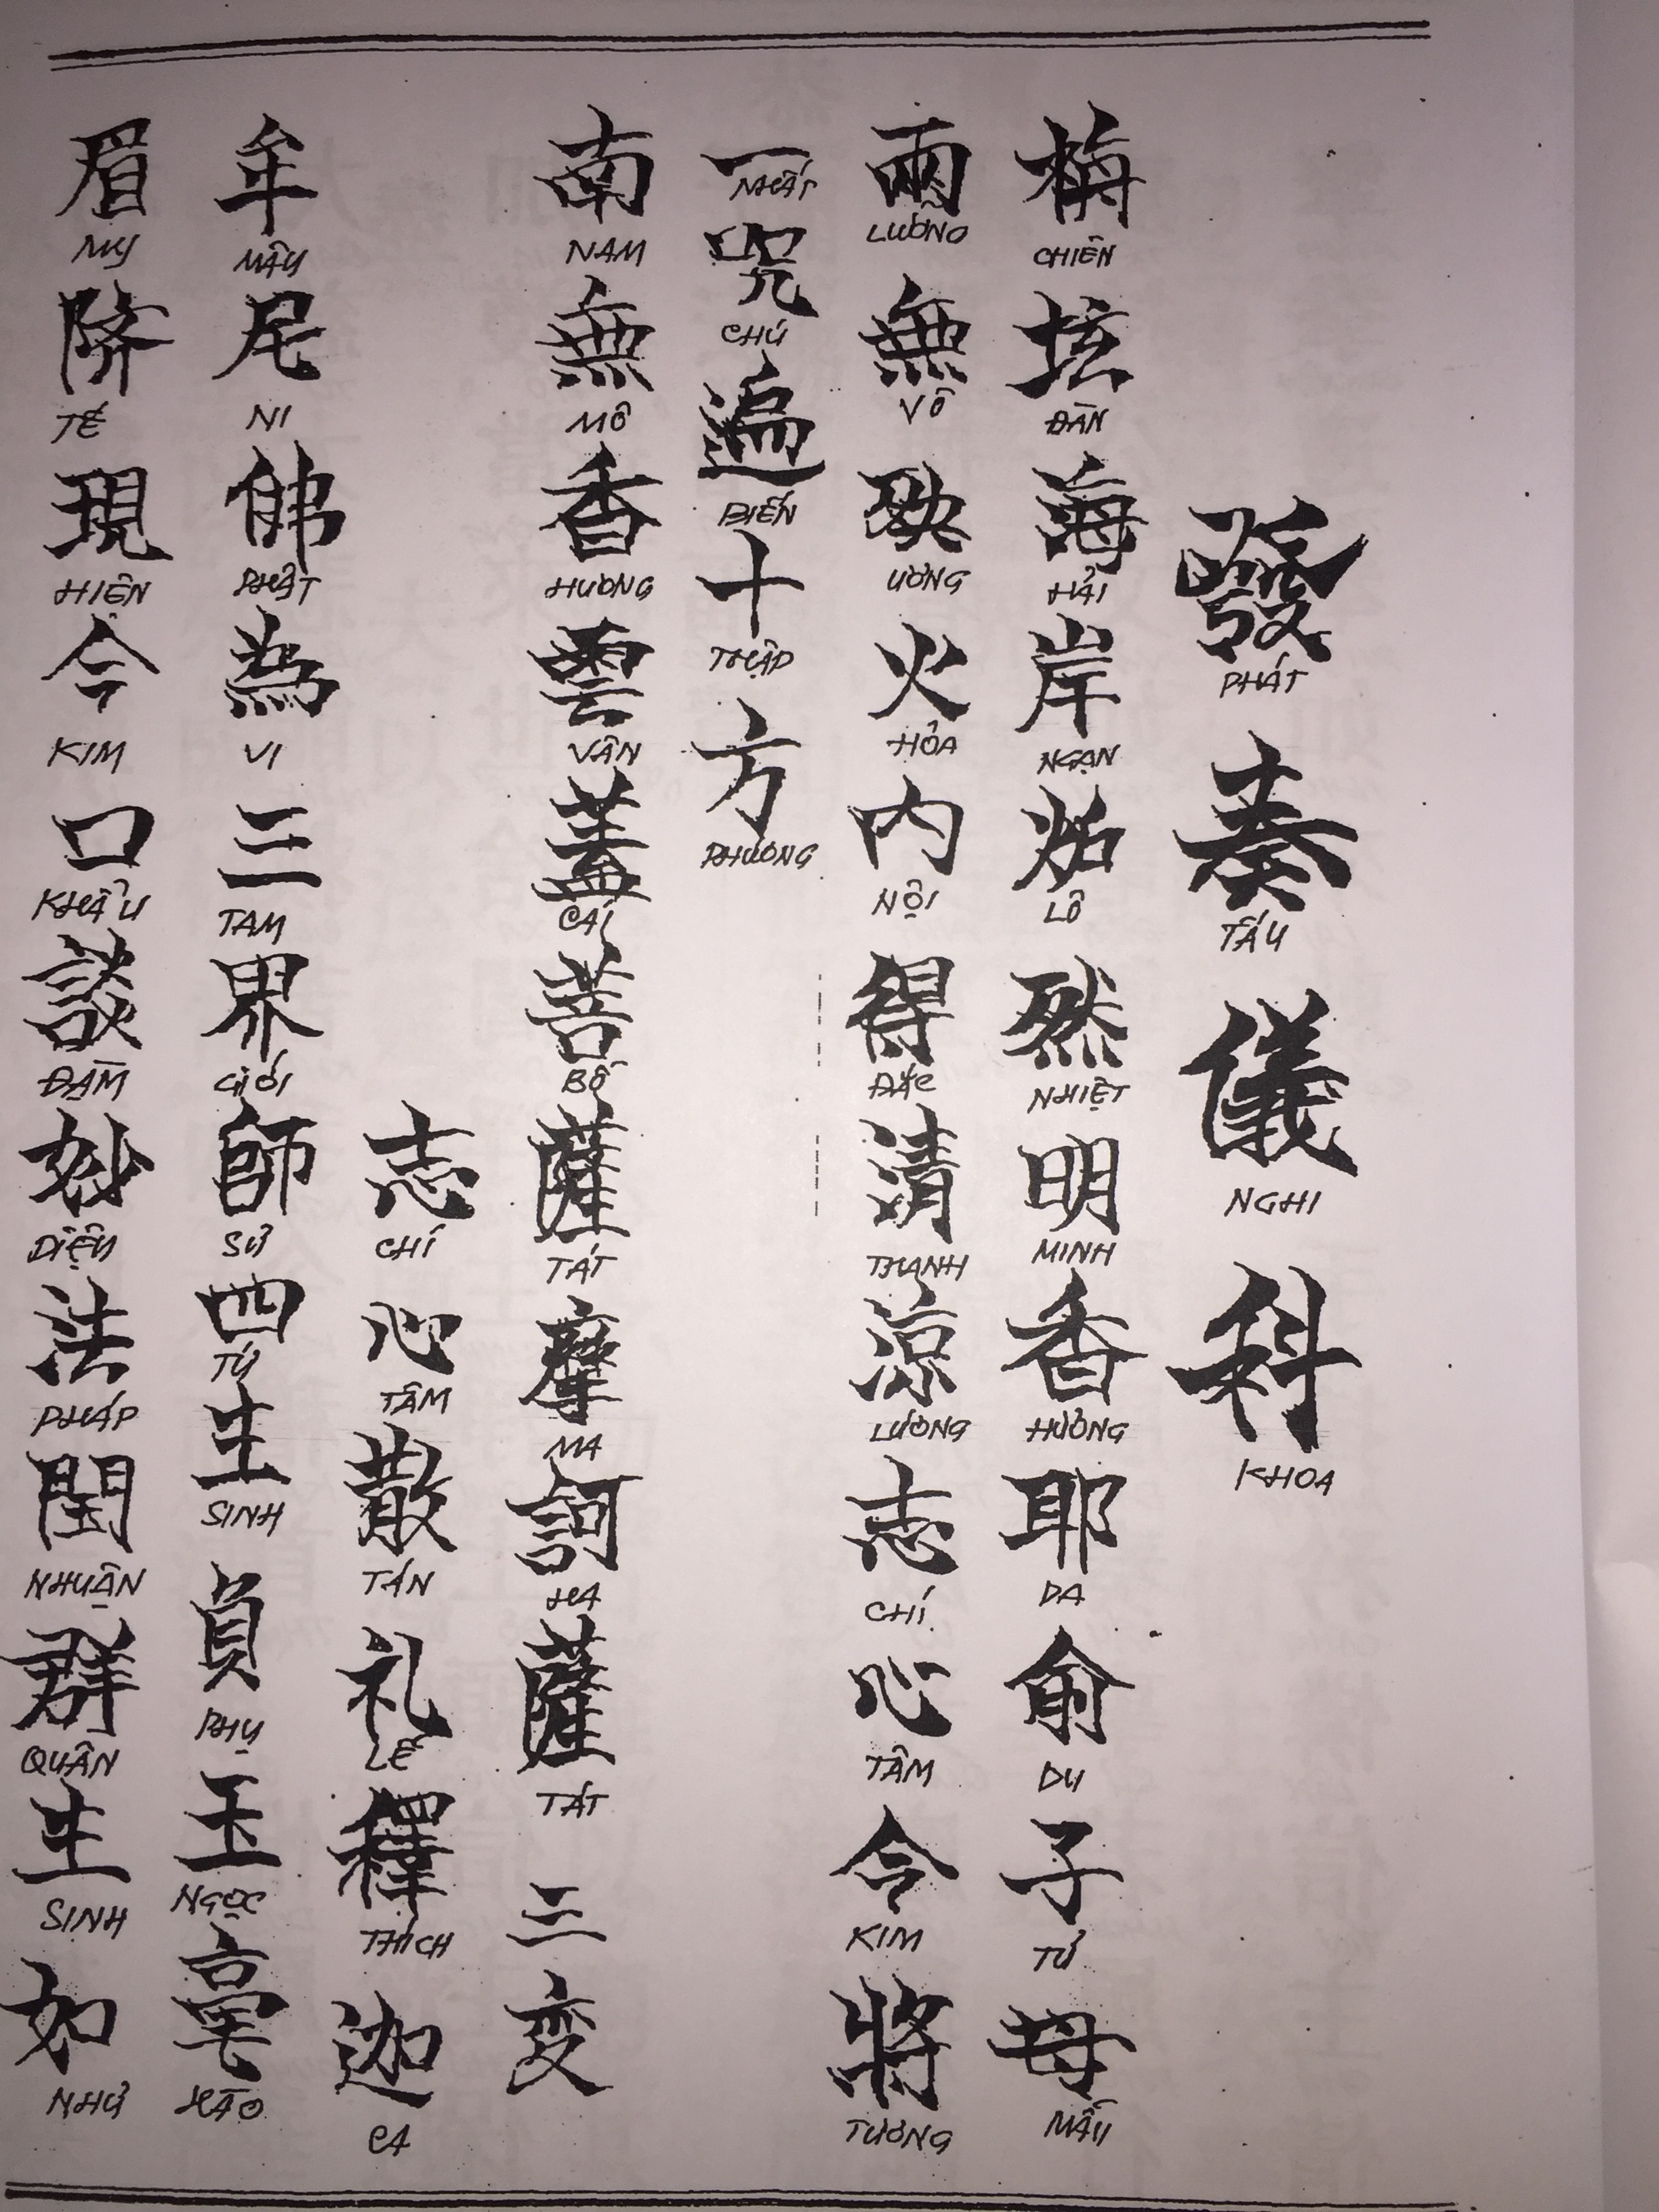 發奏儀科
PHÁT TẤU NGHI KHOA
栴坛海岸炉然明香耶俞子母
CHIÊN ĐÀN HẢI NGẠN LÔ NHIỆT MINH HƯƠNG DA DU TỬ MẪU
兩無殃火内得清涼志心今將
LƯỠNG VÔ ƯƠNG HỎA NỘI ĐẮC THANH LƯƠNG CHÍ TÂM KIM TƯƠNG
一呪遍十方
NHẤT CHÚ BIẾN THẬP PHƯƠNG
南無香雲蓋菩薩摩訶薩 三变
NAM MÔ HƯƠNG VÂN CÁI BỒ TÁT MA HA TÁT
志心散礼釋迦
CHÍ TÂM TÁN LỄ THÍCH CA
牟尼佛為三界師四生負玉毫
MÂU NI PHẬT VI TAM GIỚI SƯ TỨ SINH PHỤ NGỌC HÀO
眉際現今口談妙法閏群生如
MY TẾ HIỆN KIM KHẨU ĐÀM DIỆU PHÁP NHUẬN QUẦN SINH NHƯ